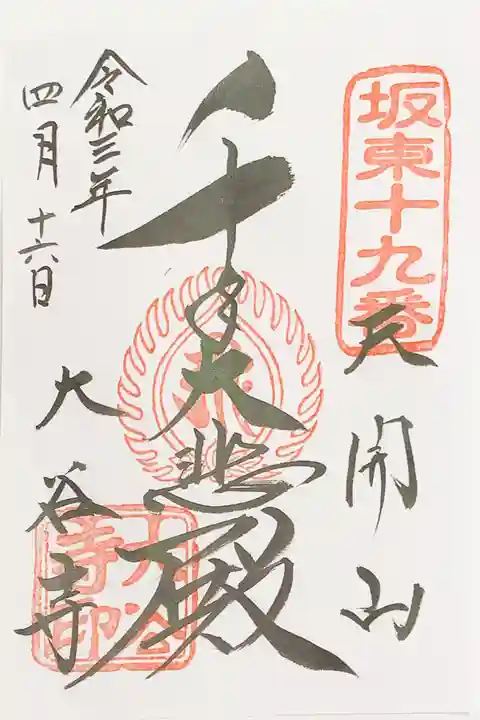 坂東十九番
天開山
千手大悲殿
大谷寺
大谷寺印
令和三年
四月十六日